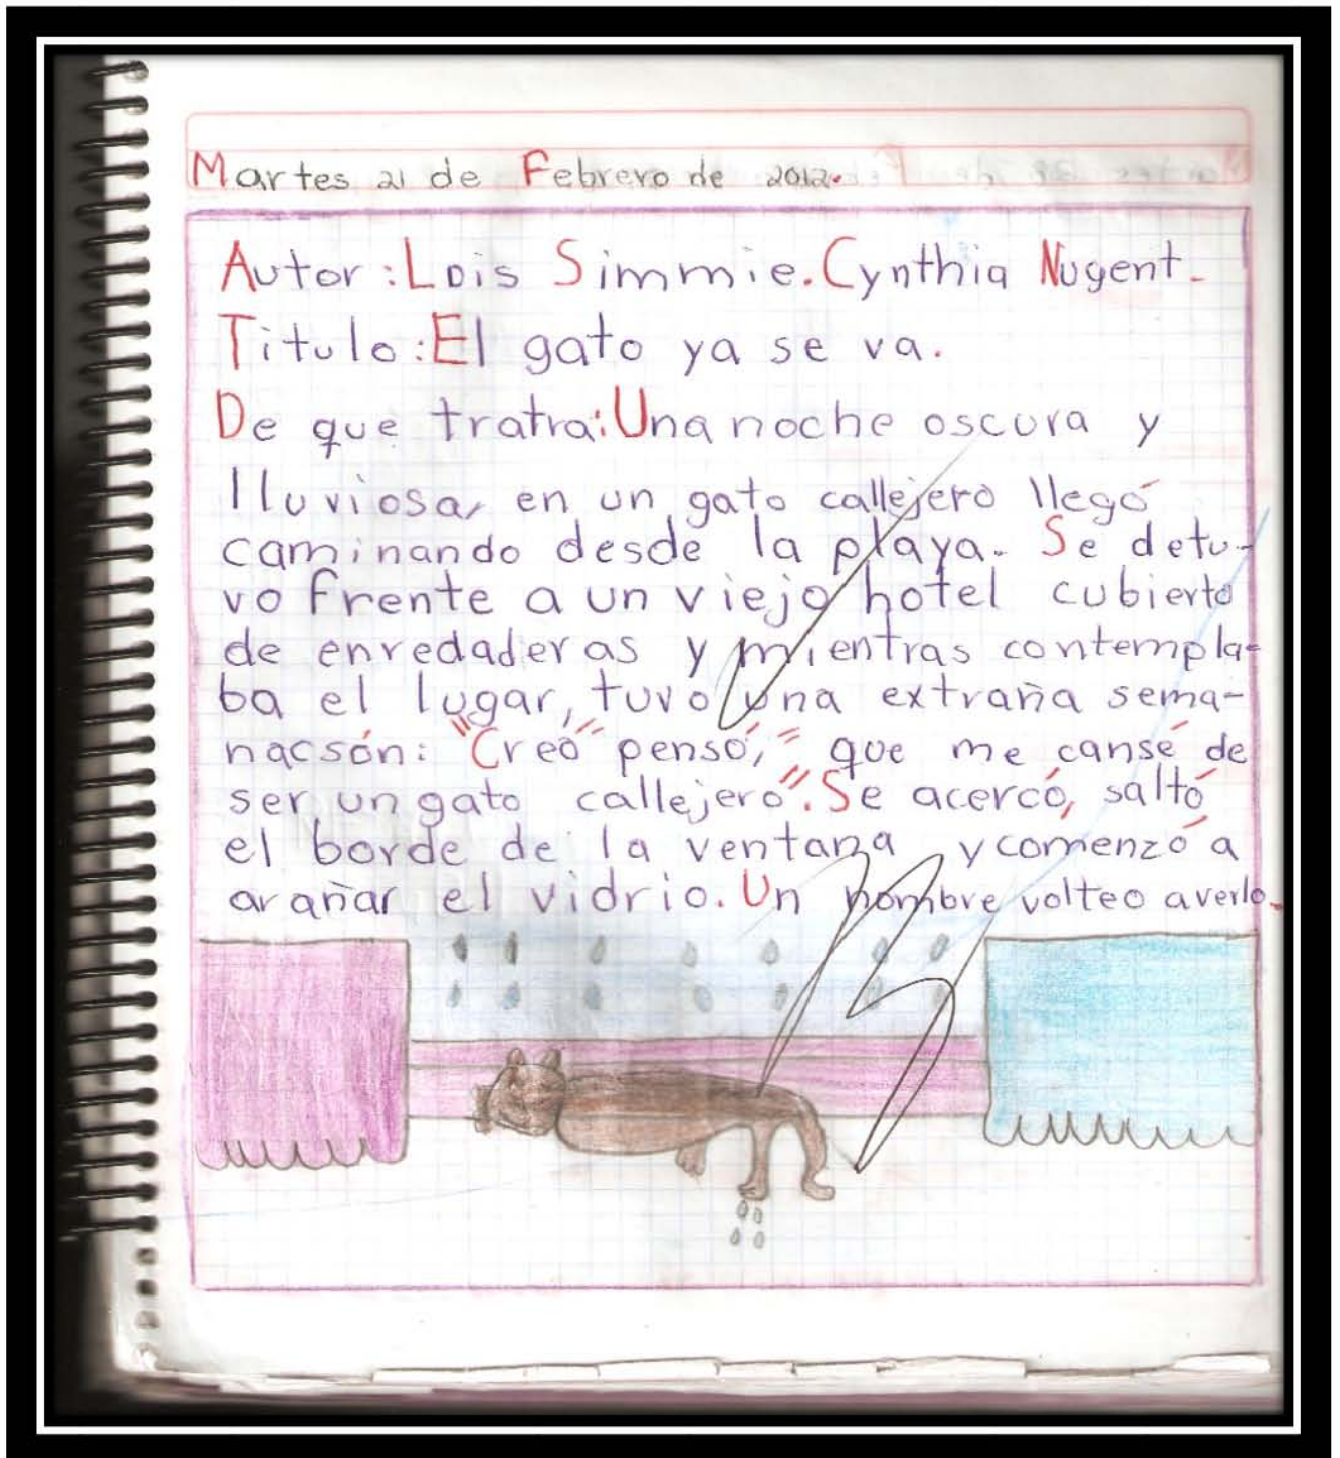 Martes 21 de Febrero de 2012.
Autor:Lois Simmie.Cynthia Nugent.
Titulo:El gato ya se va.
De que tratra:Una noche oscura y
lluviosa, en un gato callejero llegó
caminando desde la playa. Se detu-
vo frente a un viejo hotel cubierto
de enredaderas y mientras contempla-
ba el lugar, tuvo una extraña sema-
nacsón: "Creó" pensó, " que me cansé de
ser un gato callejero". Se acercó, saltó
el borde de la ventana y comenzó a
arañar el vidrio. Un hombre volteo averlo.